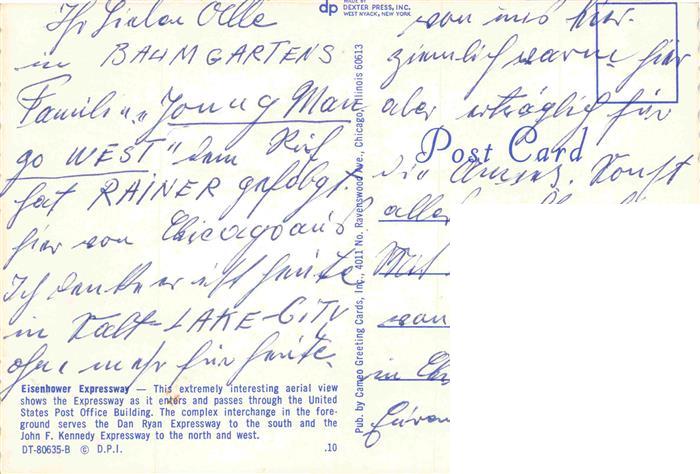 Ihr Lieben Alle
in BAUMGARTENS
Familie. „Young Man
go WEST" dem Ruf
hat RAINER gefolgt.
hier von Chicago aus
Ich denke er ist heute
in Salt-LAKE-CITY
ohne mehr für heute.
Eisenhower Expressway — This extremely interesting aerial view
shows the Expressway as it enters and passes through the United
States Post Office Building. The complex interchange in the fore-
ground serves the Dan Ryan Expressway to the south and the
John F. Kennedy Expressway to the north and west.
DT-80635-B © D.P.I. .10
dp MADE BY
DEXTER PRESS, INC.
WEST NYACK, NEW YORK
Pub. by Cameo Greeting Cards, Inc., 4011 No. Ravenswood Ave., Chicago, Illinois 60613
von uns hier.
ziemlich warm hier
aber erträglich für
Post Card
die Sonst
alles
Mit
von
in